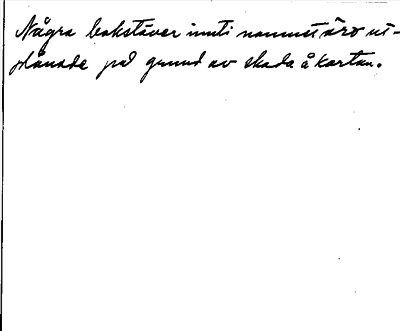 Några bokstäver inuti namnet äro ut-
plånade på grund av skada å kartan.